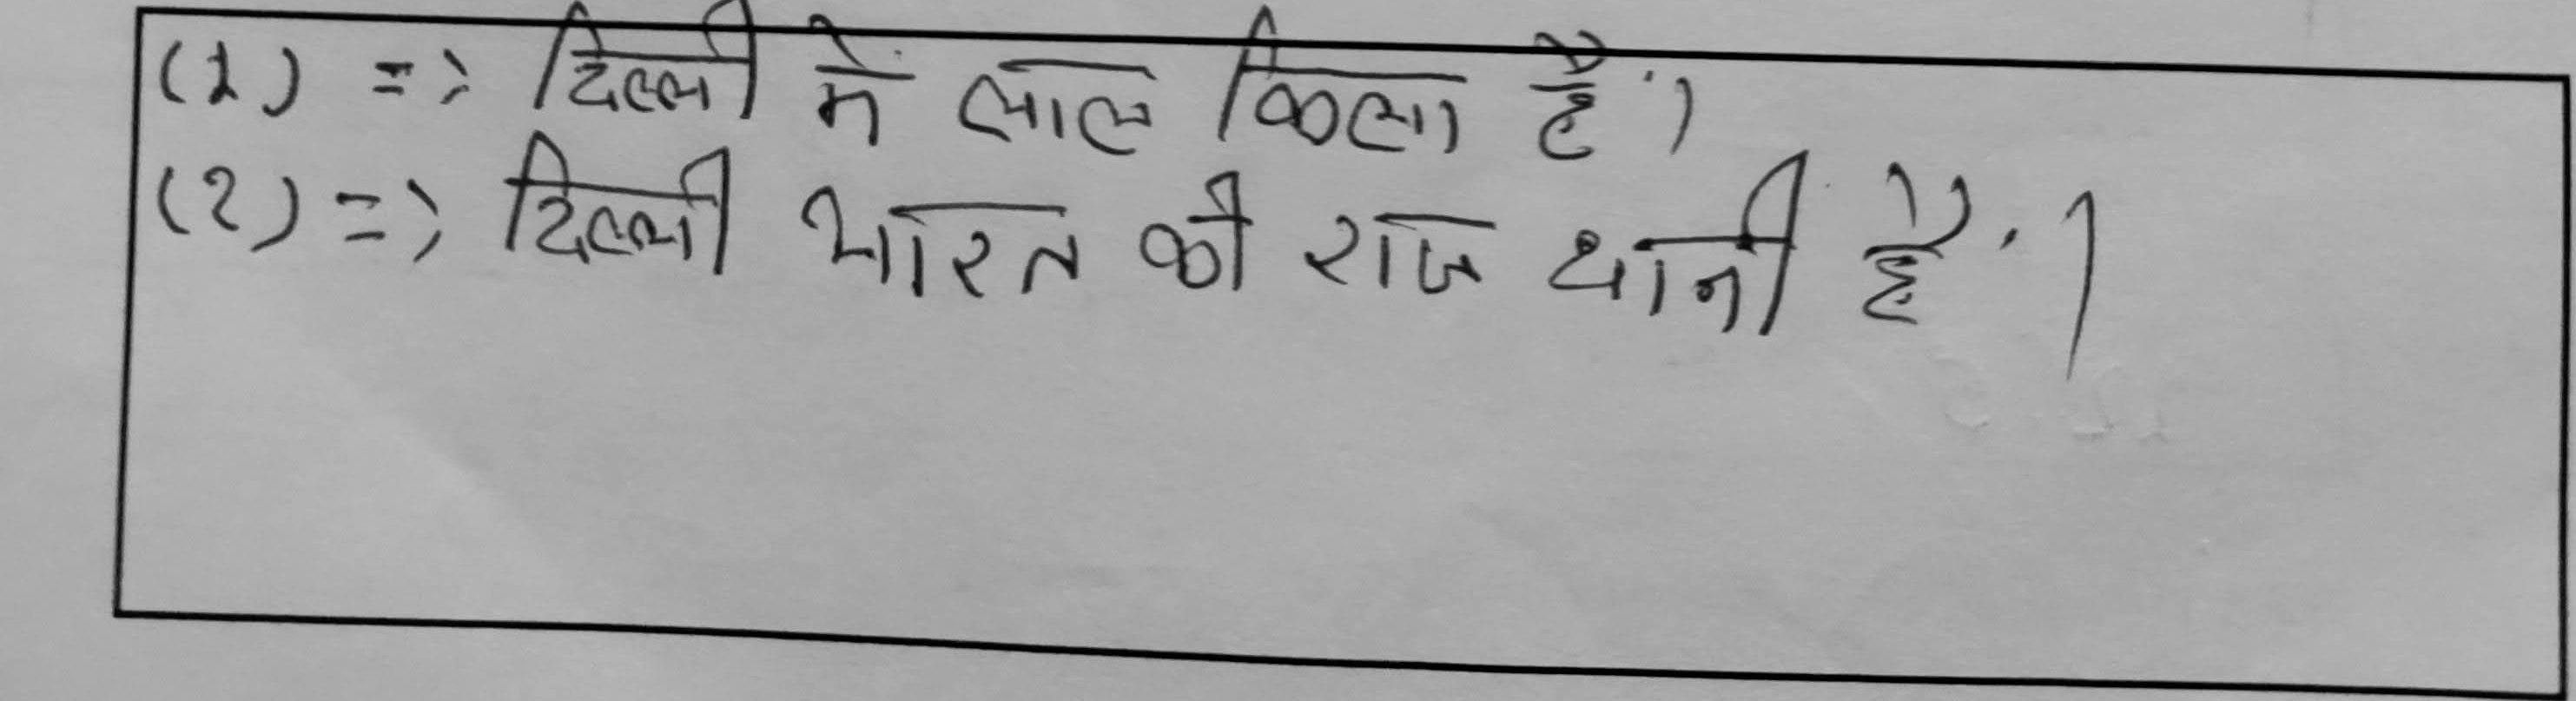 (1) => दिल्ली में लाल किला हैं।
(2) => दिल्ली भारत की राज धानी हैं।